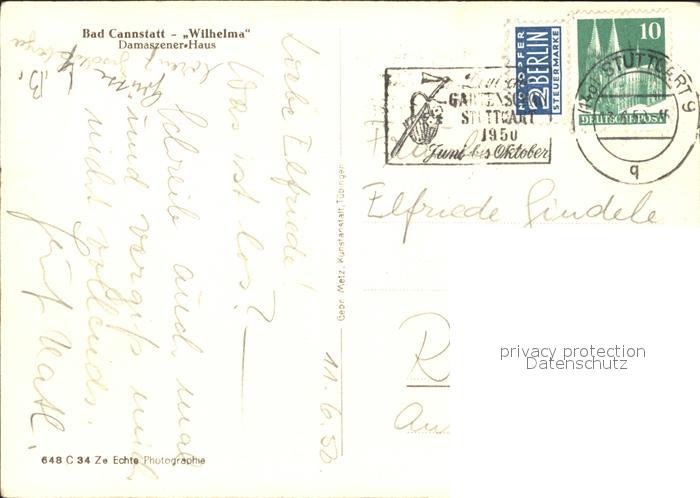 Bad Cannstatt - „Wilhelma“
Damaszener-Haus
11.6.50.
Liebe Elfriede!
Was ist los? —
Schreib auch mal
und vergiß mich
nicht vollends.
Gebr. Metz, Kunstanstalt, Tübingen
648 C 34 Ze Echte Photographie
NOTOPFER
2 BERLIN
STEUERMARKE
10
DEUTSCHE POST
STUTTGART 9
(14a)
q
GARTENSCHAU
STUTTGART
1950
Juni bis Oktober
Elfriede Gindele
privacy protection
Datenschutz